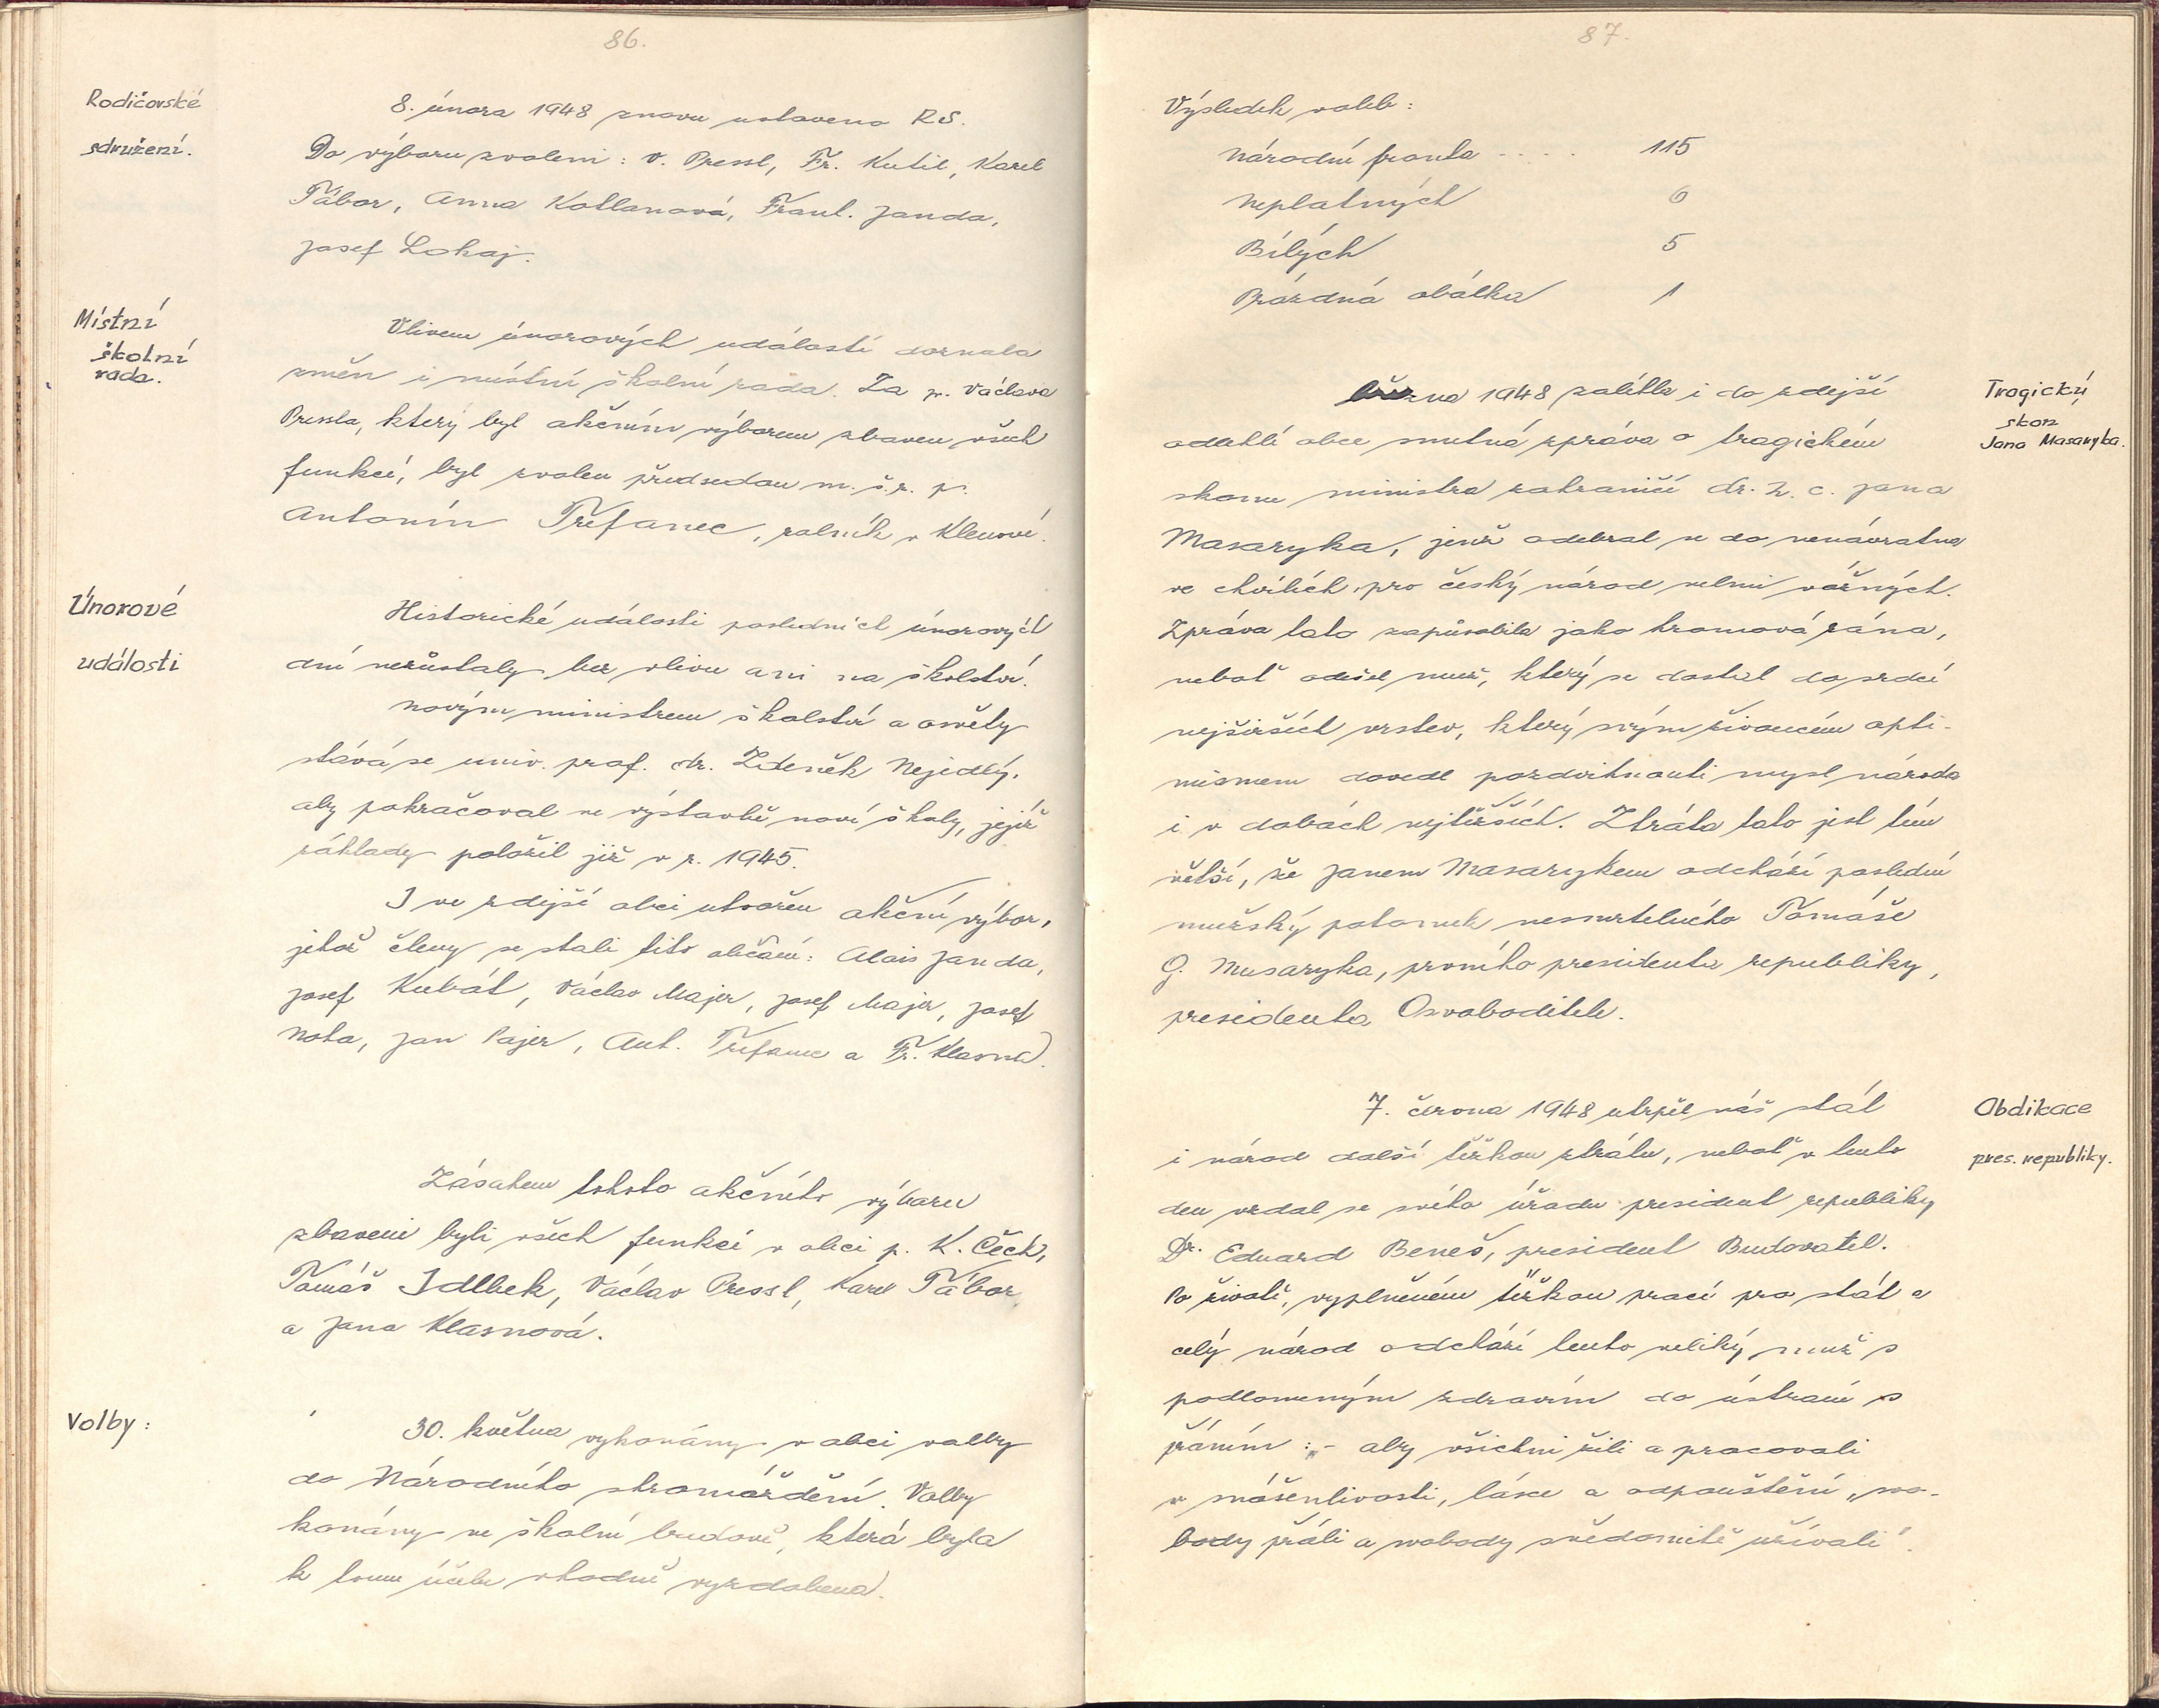 86.
Rodičovské
sdružení.
8. února 1948 znovu ustaveno RS.
Do výboru zvoleni: V. Pressl, Fr. Kutil, Karel
Tábor, Anna Kotlanová, Frant. Janda,
Josef Lokaj.
Místní
školní
rada.
Vlivem únorových událostí doznala
změn i místní školní rada. Za p. Václava
Pressla, který byl akčním výborem zbaven všech
funkcí, byl zvolen předsedou m.š.r. p.
Antonín Třefanec, rolník v Klenové.
Únorové
události
Historické události posledních únorových
dní nezůstaly bez vlivu ani na školství.
Novým ministrem školství a osvěty
stává se univ. prof. dr. Zdeněk Nejedlý,
aby pokračoval ve výstavbě nové školy, jejíž
základy položil již v r. 1945.
I ve zdejší obci utvořen akční výbor,
jehož členy se stali tito občané: Alois Janda,
Josef Kubát, Václav Majer, Josef Majer, Josef
Nota, Jan Pajer, Ant. Třefanec a Fr. Klasna.
Zásahem tohoto akčního výboru
zbaveni byli všech funkcí v obci p. K. Čech,
Tomáš Idlbek, Václav Pressl, Karel Tábor
a Jana Klasnová.
Volby:
30. května vykonány v obci volby
do Národního shromáždění. Volby
konány ve školní budově, která byla
k tomu účelu vhodně vyzdobena.
87.
Výsledek voleb:
Národní fronta . . . . 115
Neplatných 0
Bílých 5
Prázdná obálka 1
Tragický
skon
Jana Masaryka.
března 1948 zalétla i do zdejší
odlehlé obce smutná zpráva o tragickém
skonu ministra zahraničí dr. h. c. Jana
Masaryka, jenž odebral se do nenávratna
ve chvílích pro český národ velmi vážných.
Zpráva tato zapůsobila jako hromová rána,
neboť odešel muž, který se dostal do srdcí
nejširších vrstev, který svým živoucím opti-
mismem dovedl pozdvihnouti mysl národa
i v dobách nejtěžších. Ztráta tato jest tím
větší, že Janem Masarykem odchází poslední
mužský potomek nesmrtelného Tomáše
G. Masaryka, prvního presidenta republiky,
presidenta Osvoboditele.
Abdikace
pres. republiky.
7. června 1948 utrpěl náš stát
i národ další těžkou ztrátu, neboť v tento
den vzdal se svého úřadu president republiky
Dr. Eduard Beneš, president Budovatel.
Po životě, vyplněném těžkou prací pro stát a
celý národ odchází tento veliký muž s
podlomeným zdravím do ústraní s
přáním: - aby všichni žili a pracovali
v snášenlivosti, lásce a odpouštění „svo-
body přáli a svobody svědomitě užívali".